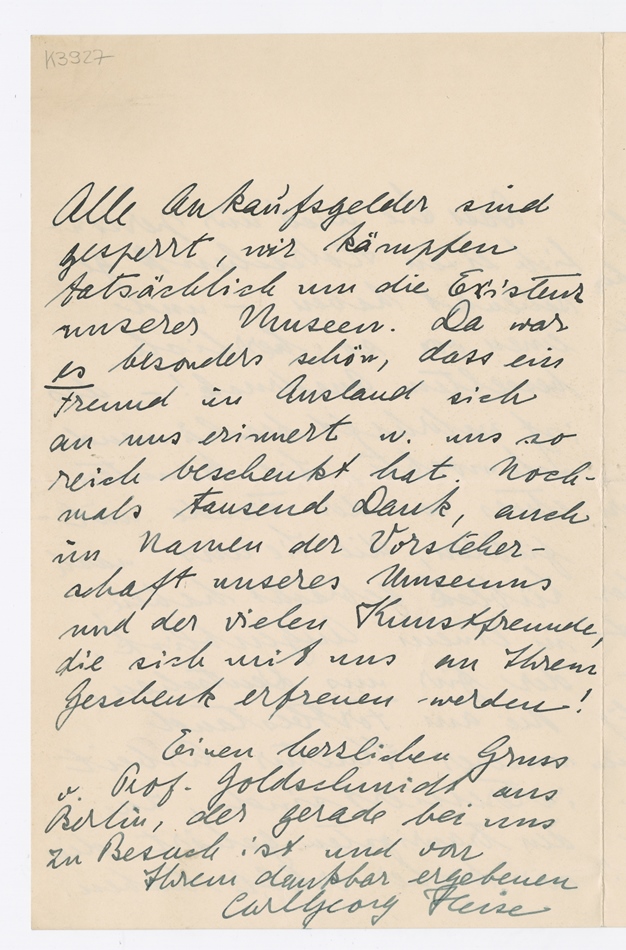 K3927
Alle Ankaufsgelder sind
gesperrt, wir kämpfen
tatsächlich um die Existenz
unserer Museen. Da war
es besonders schön, dass ein
Freund im Ausland sich
an uns erinnert u. uns so
reich beschenkt hat. Noch-
mals tausend Dank, auch
im Namen der Vorsteher-
schaft unseres Museums
und der vielen Kunstfreunde,
die sich mit uns an Ihrem
Geschenk erfreuen werden!
Einen herzlichen Gruss
v. Prof. Goldschmidt aus
Berlin, der gerade bei uns
zu Besuch ist und von
Ihrem dankbar ergebenen
Carl Georg Heise